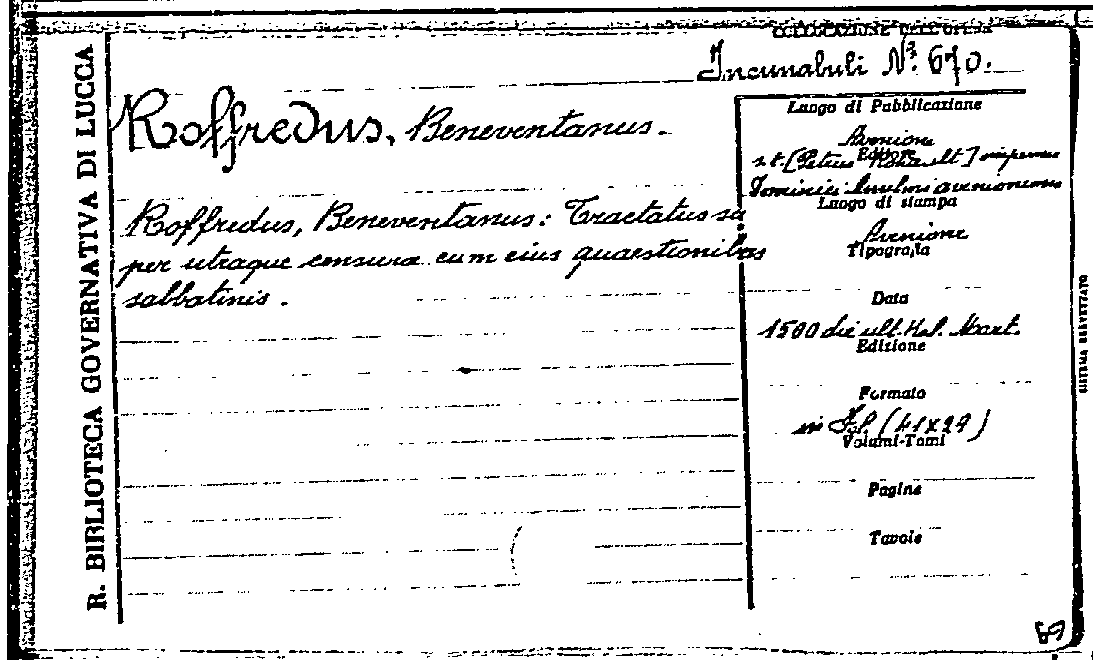 COLLOCAZIONE DELL'OPERA
Incunabuli N.º 670.
R. BIBLIOTECA GOVERNATIVA DI LUCCA
Roffredus, Beneventanus.
Roffredus, Beneventanus: Tractatus su
per utraque censura cum eius quaestionibus
sabbatinis.
Luogo di Pubblicazione
Avenione
Editore
s.t. [Petrus Rohault] impensis
Dominici Anselmi avenionensis
Luogo di stampa
Avenione
Tipografia
Data
1500 die ult. Kal. Mart.
Edizione
Formato
in Fol. (41x29)
Volumi-Tomi
Pagine
Tavole